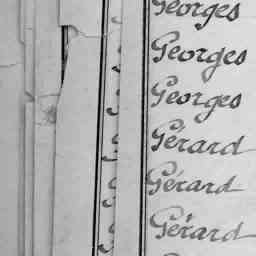 Georges
Georges
Georges
Gérard
Gérard
Gérard